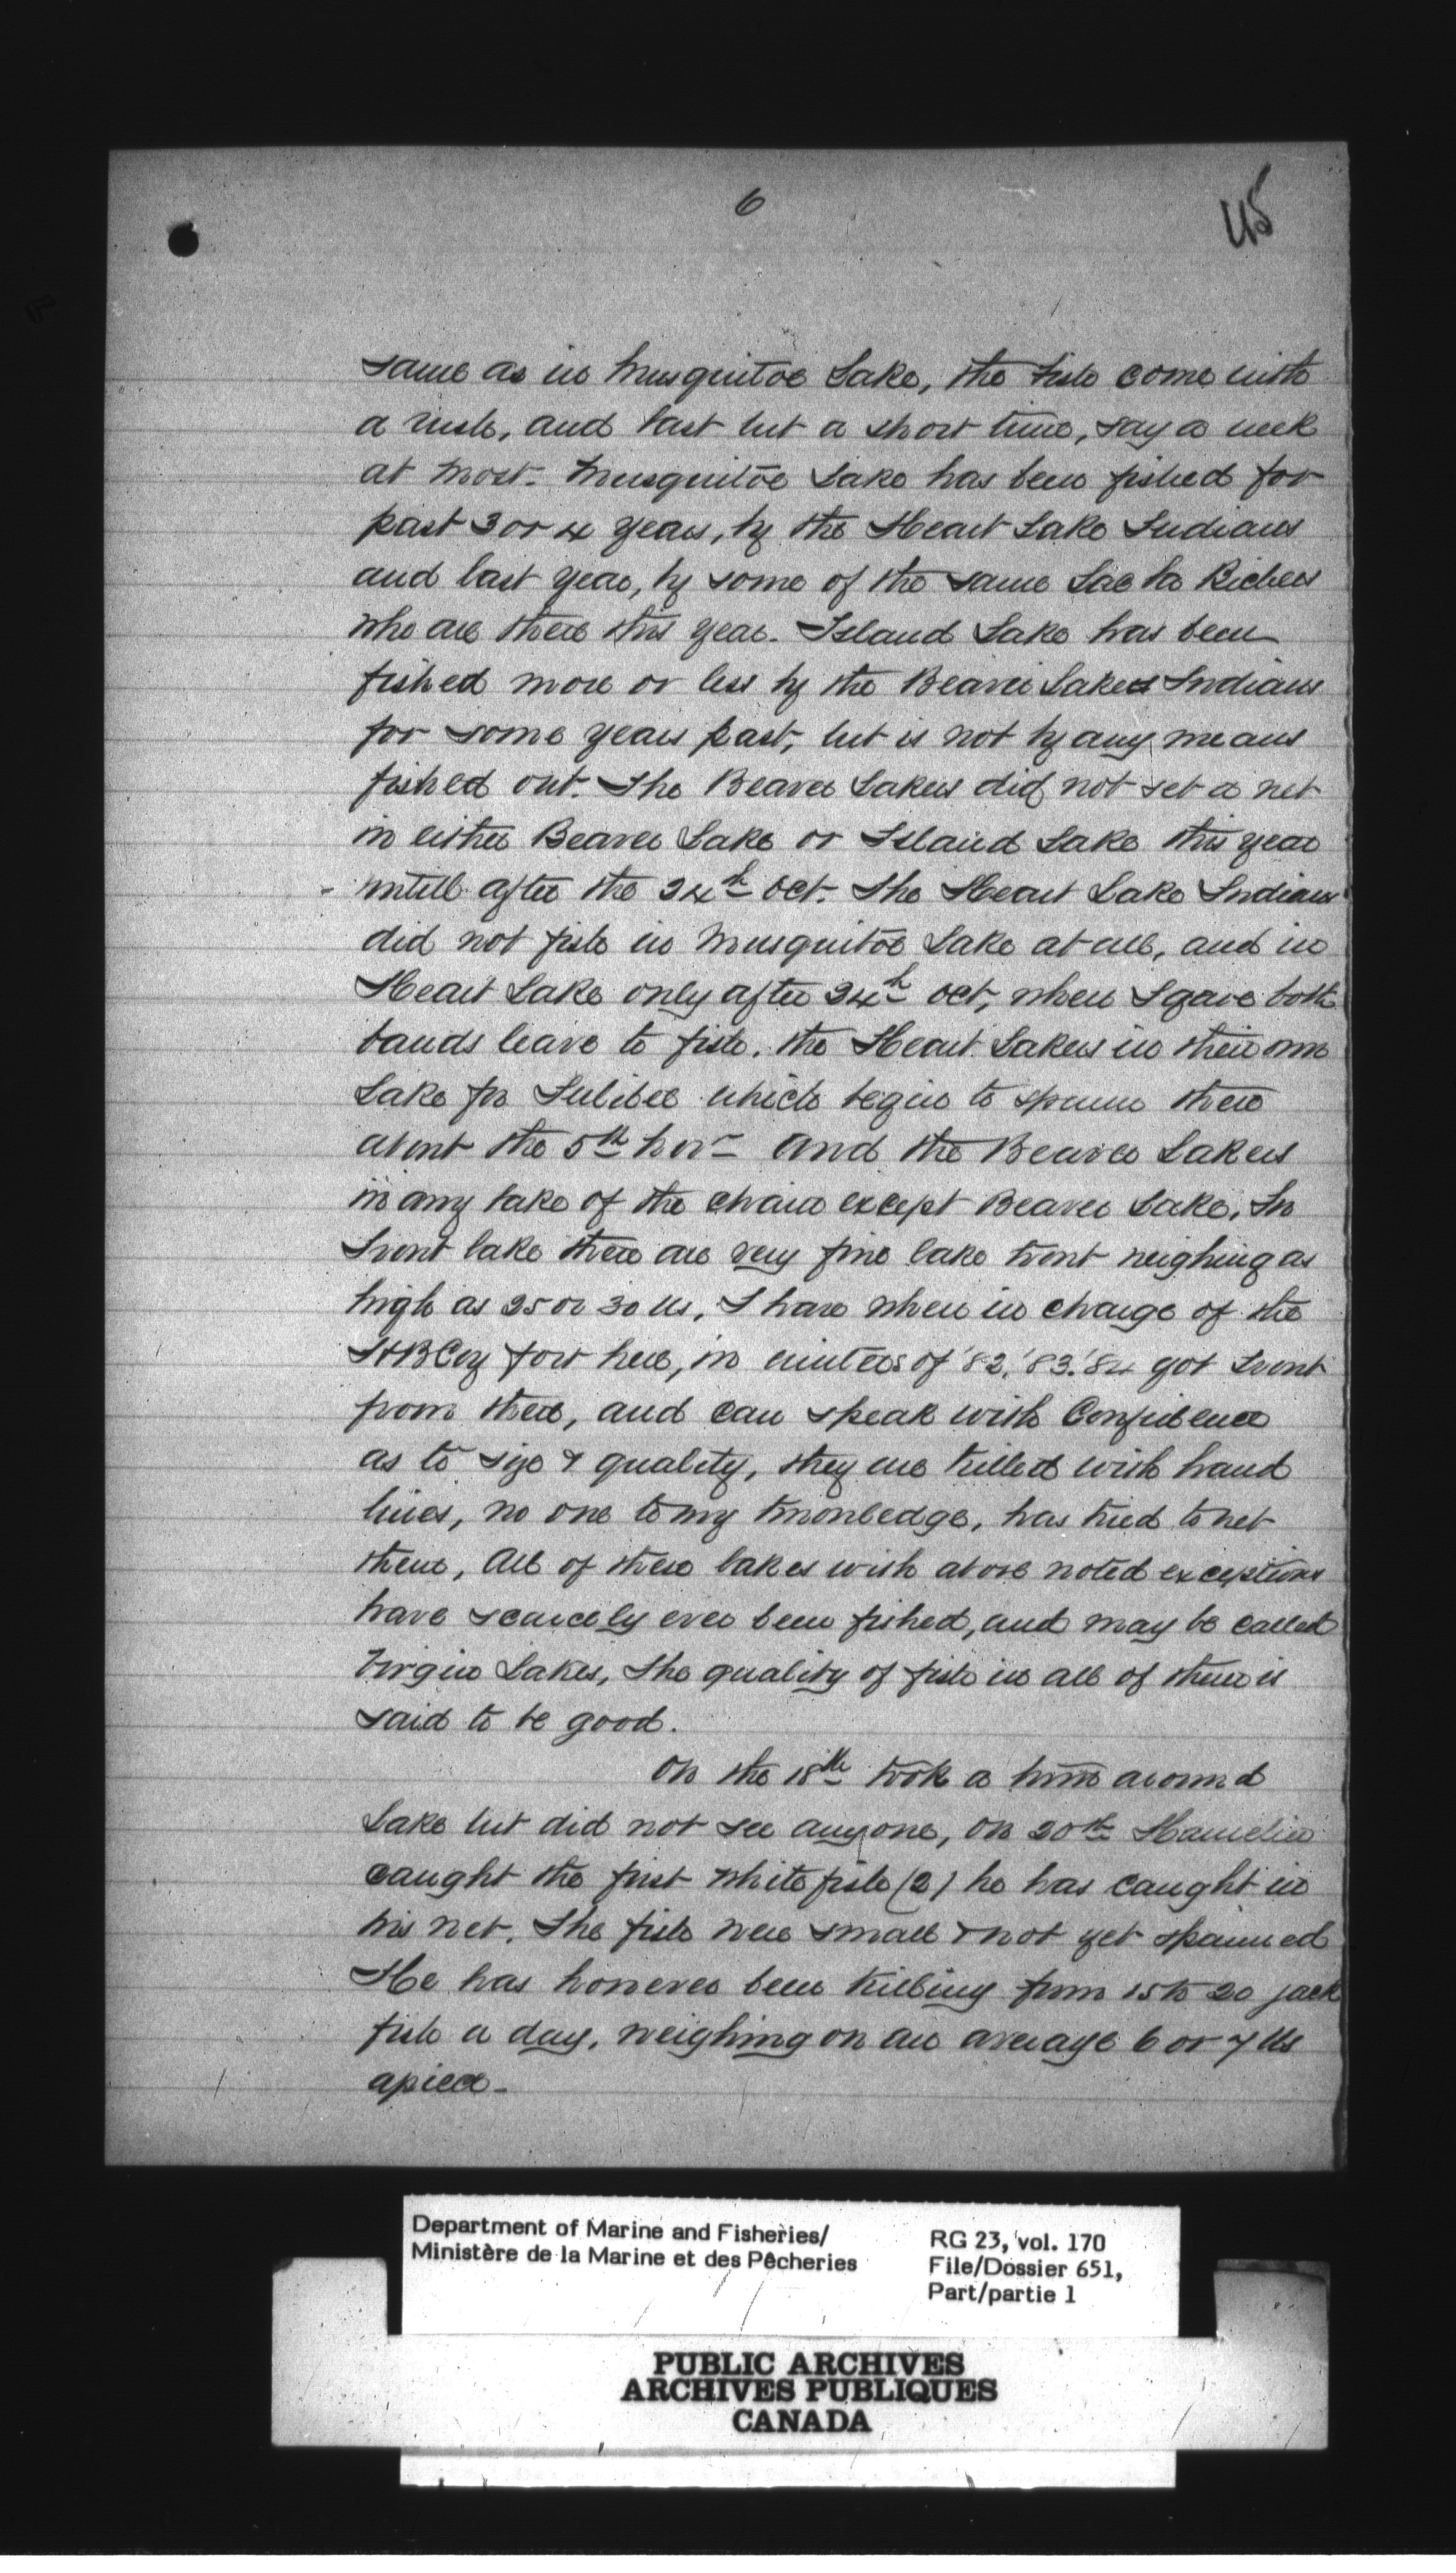 6
45
same as in Musquitoe Lake, the fish come with
a rush, and last but a short time, say a week
at most. Musquitoe Lake has been fished for
past 3 or 4 years, by the Heart Lake Indians
and last year, by some of the same Lac la Biches
who are there this year. Island Lake has been
fished more or less by the Beaver Lakes Indians
for some years past, but is not by any means
fished out. The Beaver Lakers did not set a net
in either Beaver Lake or Island Lake this year
untill after the 24th Oct. The Heart Lake Indians
did not fish in Musquitoe Lake at all, and in
Heart Lake only after 24th Oct, when I gave both
bands leave to fish. the Heart Lakers in their own
Lake for Tulibee which begin to spawn there
about the 5th Nov and the Beaver Lakers
in any lake of the chain except Beaver Lake. In
Trout lake there are very fine lake trout weighing as
high as 25 or 30 lbs, I have when in charge of the
HBCoy for here, in winters of '82, '83. '84 got Trout
from there, and can speak with Confidence
as to size & quality, they are killed with hand
lines, no one to my knowledge, has tried to net
them, All of these lakes with above noted exceptions
have scarcely ever been fished, and may be called
Virgin Lakes, The quality of fish in all of them is
said to be good.
On the 18th took a turn around
Lake but did not see anyone, on 20th Hamelin
caught the first white fish (2) he has caught in
his net. The fish were small & not yet spawned
He has however been killing from 15 to 20 jack
fish a day, weighing on an average 6 or 7 lbs
apiece -
Department of Marine and Fisheries/
Ministère de la Marine et des Pêcheries
RG 23, vol. 170
File/Dossier 651,
Part/partie 1
PUBLIC ARCHIVES
ARCHIVES PUBLIQUES
CANADA